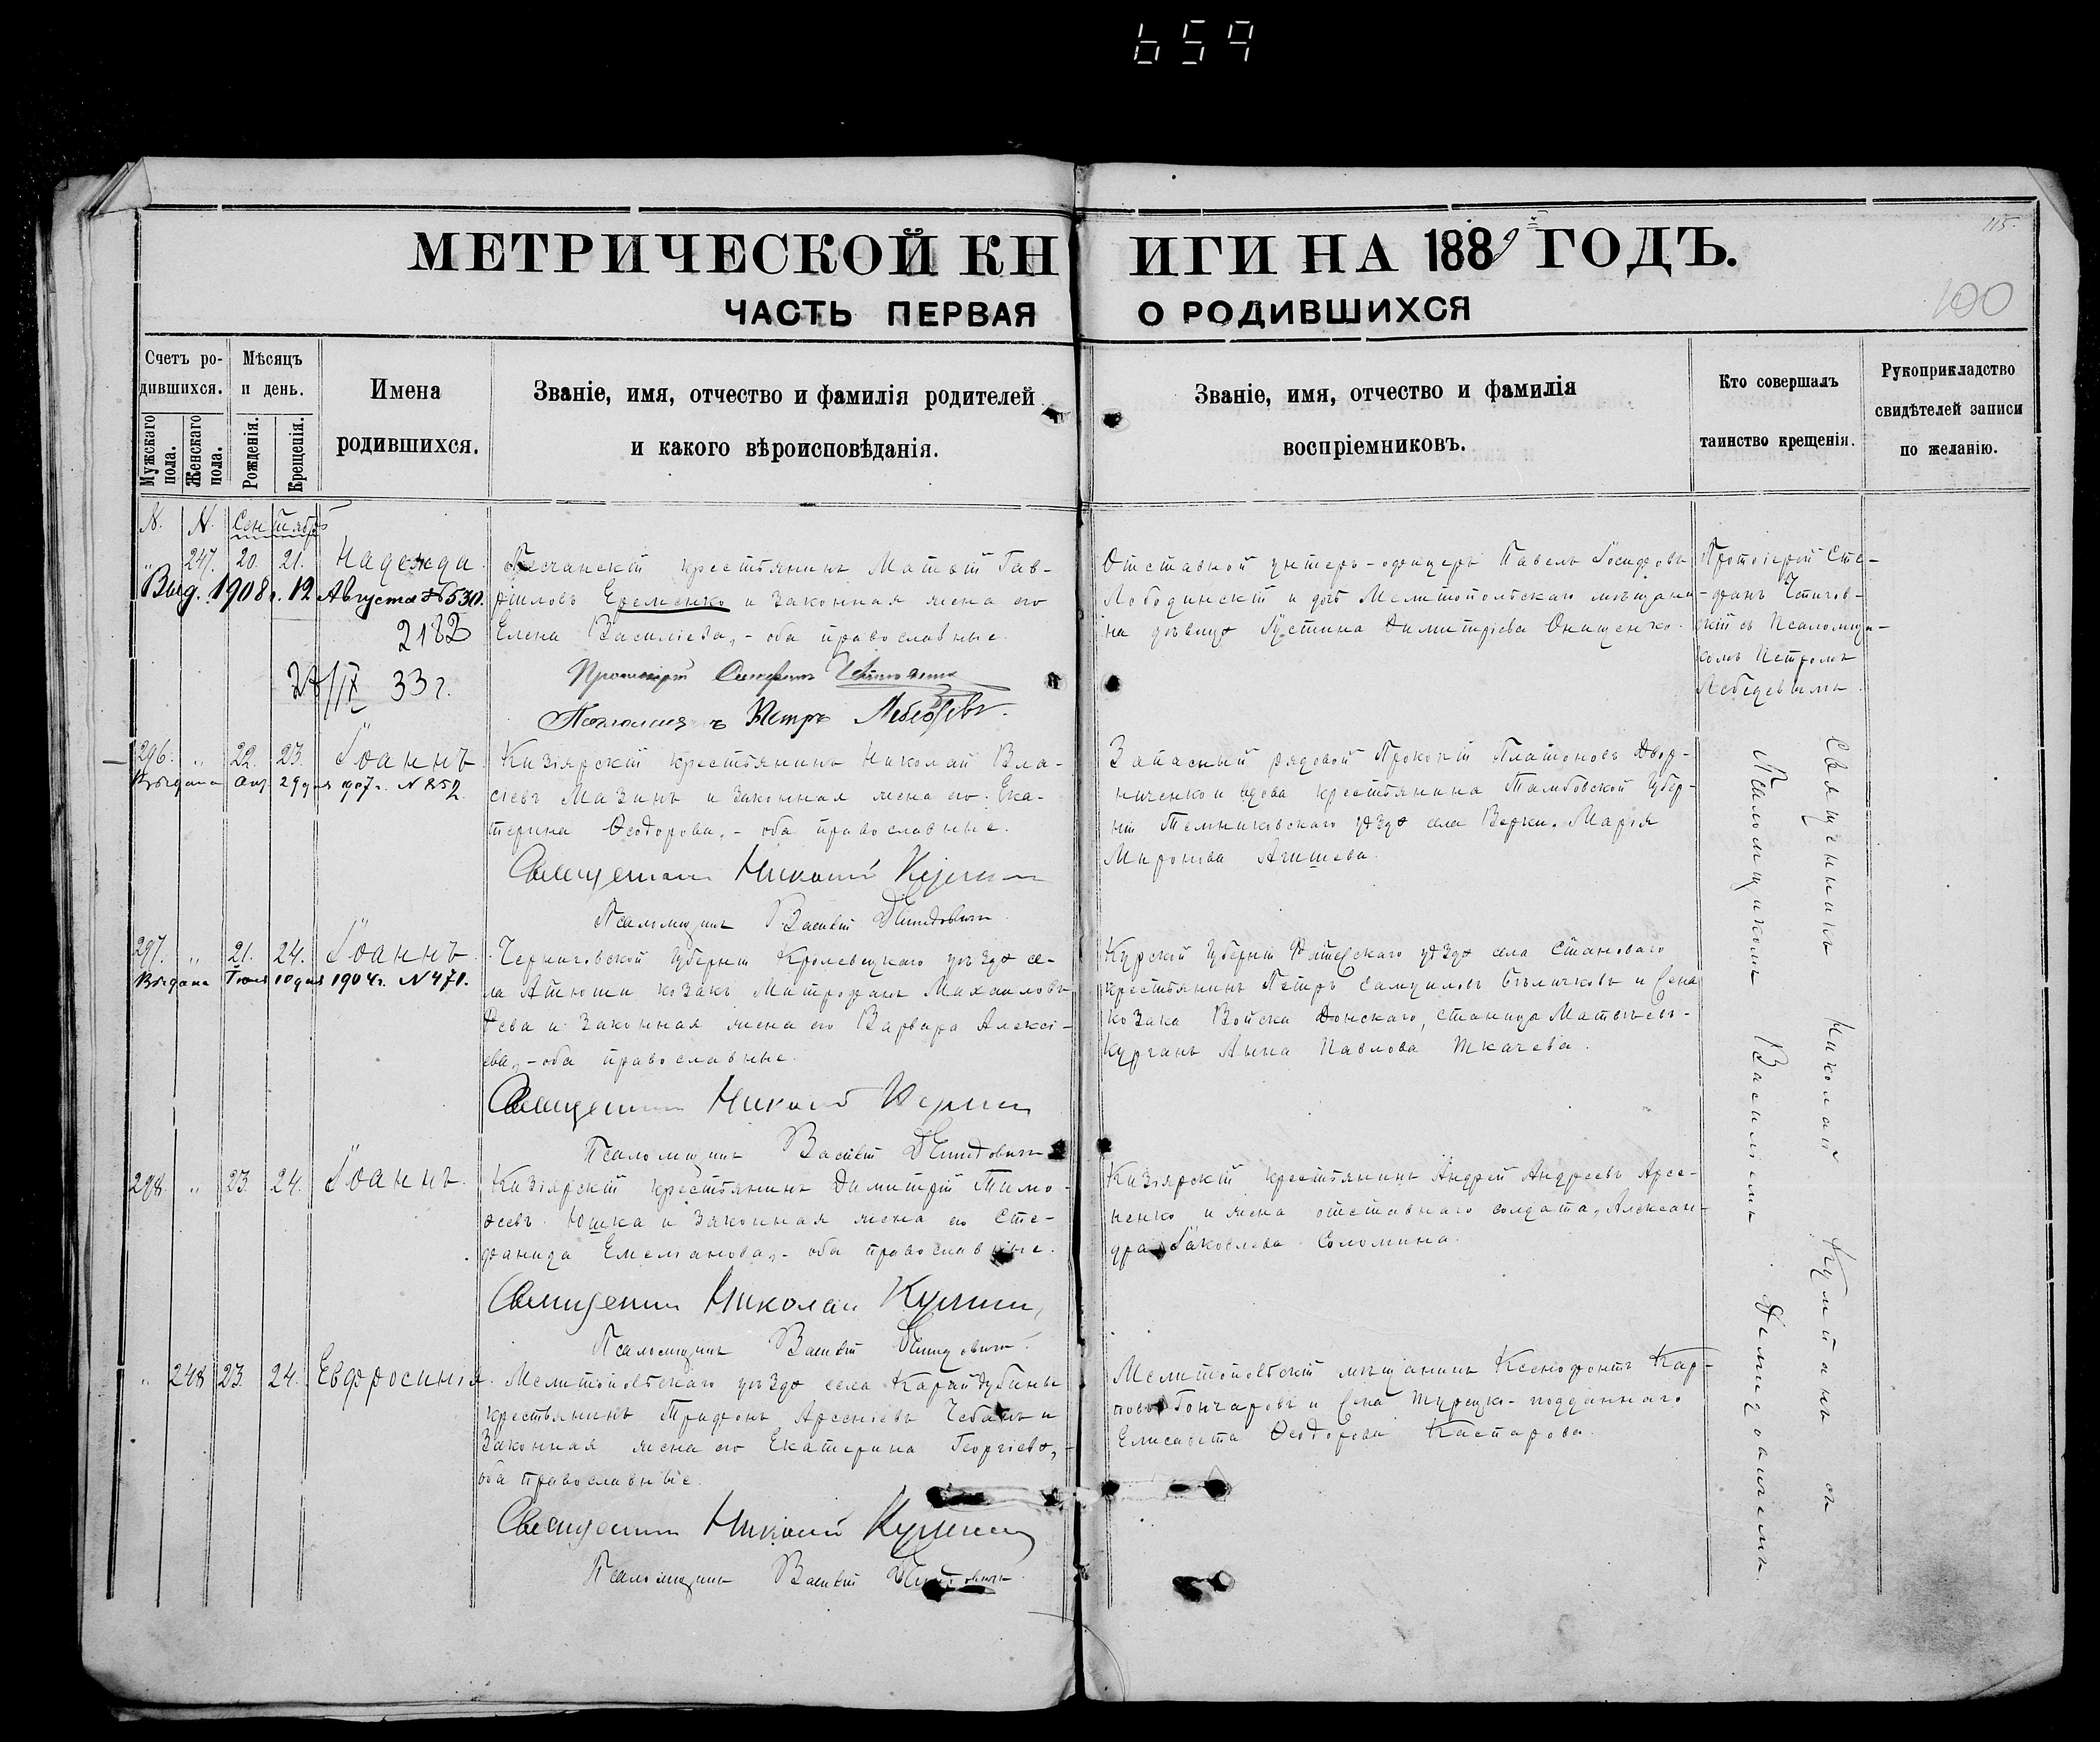 659
МЕТРИЧЕСКОЙ КНИГИ НА 1889 ГОДЪ.
115.
ЧАСТЬ ПЕРВАЯ О РОДИВШИХСЯ
100
Счетъ ро-
дившихся.
Мужскаго пола.
Женскаго пола.
Мѣсяцъ
и день.
Рожденія.
Крещенія.
Имена
родившихся.
Званіе, имя, отчество и фамилія родителей
и какого вѣроисповѣданія.
Званіе, имя, отчество и фамилія
воспріемниковъ.
Кто совершалъ
таинство крещенія.
Рукоприкладство
свидѣтелей записи
по желанію.
N. N. Сентябрь
" 247. 20. 21. Надежда.
Выд. 1908 г. 12 Августа № 530.
2182
/IX 33 г.
Песчанскій крестьянинъ Матѳій Гав-
риловъ Еременко и законная жена его
Елена Василіева, - оба православные.
Протоіерей Стефанъ
Псаломщикъ Петръ Лебедевъ.
Отставной унтеръ-офицеръ Павелъ Іосифовъ
Лободинскій и дочь Мелитопольскаго мѣщани-
на дѣвица Іустина Димитріева Онищенко.
Протоіерей Сте-
фанъ
съ псаломщи-
комъ Петромъ
Лебедевымъ.
296. " 22. 23. Іоаннъ
Выдана 29 дня 1907 г. N 852
Кизіярскій крестьянинъ Николай Вла-
сіевъ Мазинъ и законная жена его Ека-
терина Ѳеодорова, - оба православные.
Священникъ Николай
Псаломщикъ Василій Демидовичъ
Запасный рядовой Прокопій Платоновъ Двор-
ниченко и вдова крестьянина Тамбовской губер-
ніи Темниковскаго уѣзда села Верки. Марія
Миронова Агишева.
297. " 21. 24. Іоаннъ
Выдана Іюня 10 дня 1904 г. N 471.
Черниговской губерніи Кролевецкаго уѣзда се-
ла Атюши козакъ Митрофанъ Михаиловъ
и законная жена его Варвара Алексі-
ева, - оба православные.
Священникъ Николай
Псаломщикъ Василій Демидовичъ
Курской губерніи уѣзда села Становаго
крестьянинъ Петръ Самуиловъ Бѣличковъ и жена
козака Войска Донскаго, станица Матвѣевъ-
Курганъ Анна Павлова Ткачева.
298. " 23. 24. Іоаннъ.
Кизіярскій крестьянинъ Димитрій Тимо-
ѳеевъ Юшка и законная жена его Сте-
фанида Емеліанова, - оба православные.
Священникъ Николай
Псаломщикъ Василій Демидовичъ.
Кизіярскій крестьянинъ Андрей Андреевъ Арсе-
ненко и жена отставнаго солдата, Алексан-
дра Іаковлева Соломина.
" 248 23. 24. Евфросинія.
Мелитопольскаго уѣзда села
крестьянинъ Трифонъ Арсеніевъ Чебанъ и
законная жена его Екатерина Георгіева, -
оба православные.
Священникъ Николай
Псаломщикъ Василій Демидовичъ.
Мелитопольскій мѣщанинъ Ксенофонтъ Кар-
повъ Гончаровъ и жена турецко-подданнаго
Елисавета Ѳеодорова Кастарова.
Священникъ Николай съ
Псаломщикомъ Василіемъ Демидовичемъ.